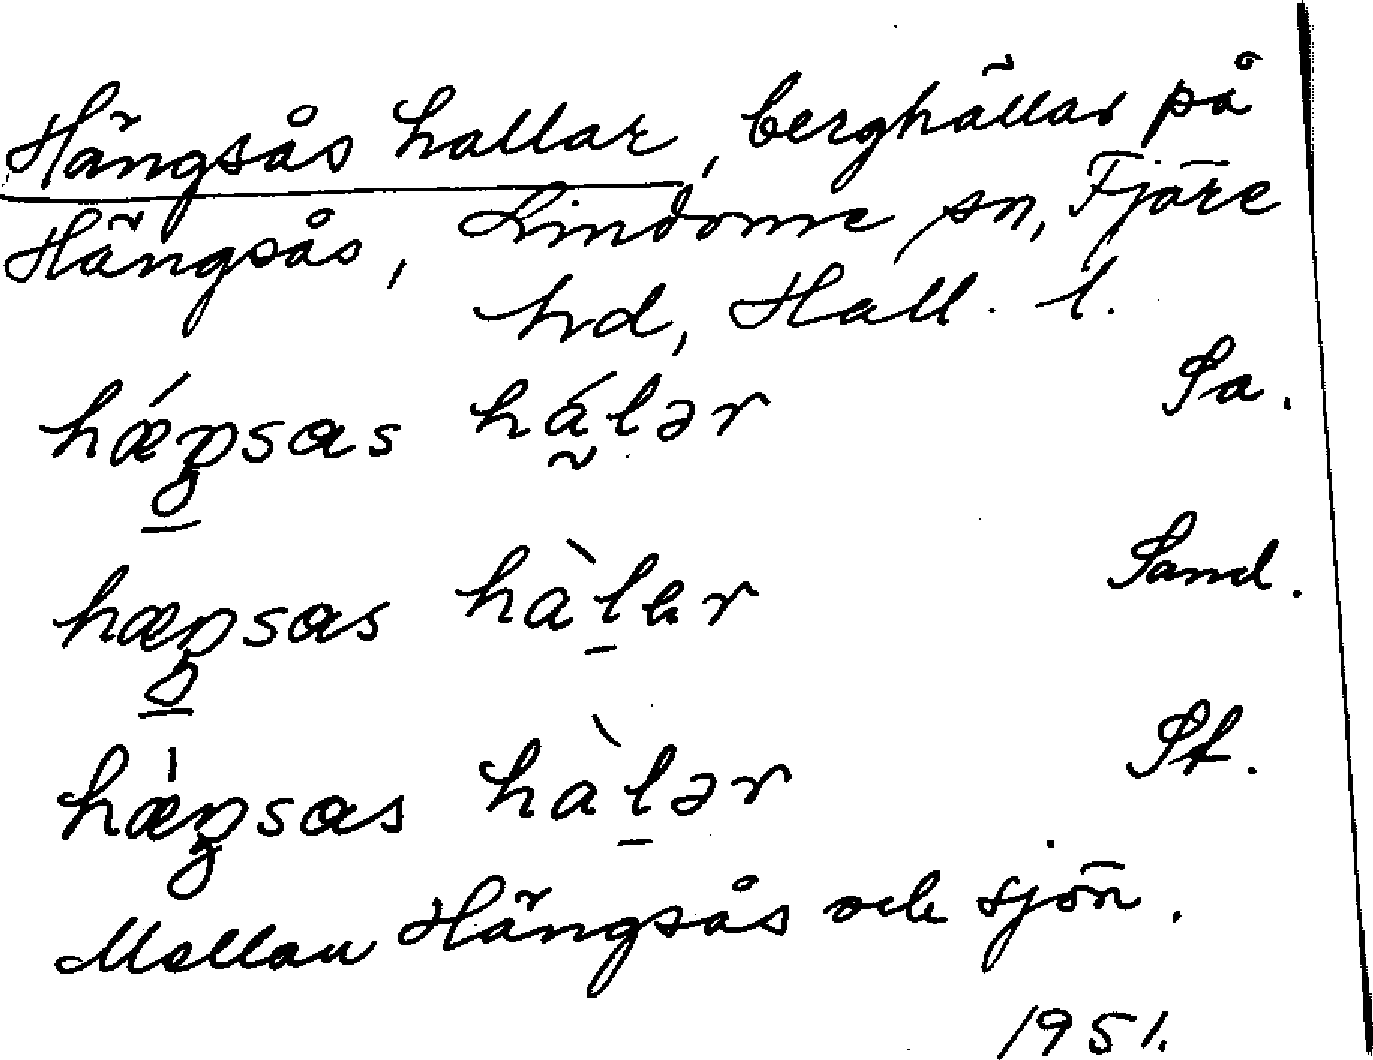 Hängsås hallar, berghällar på
Hängsås, Lindome sn, Fjäre
hd, Hall. l.
hǽŋsɑs hálər Sa.
hæŋsɑs hàlɐr Sand.
hæ̀ŋsɑs hàlər St.
Mellan Hängsås och sjön.
1951.